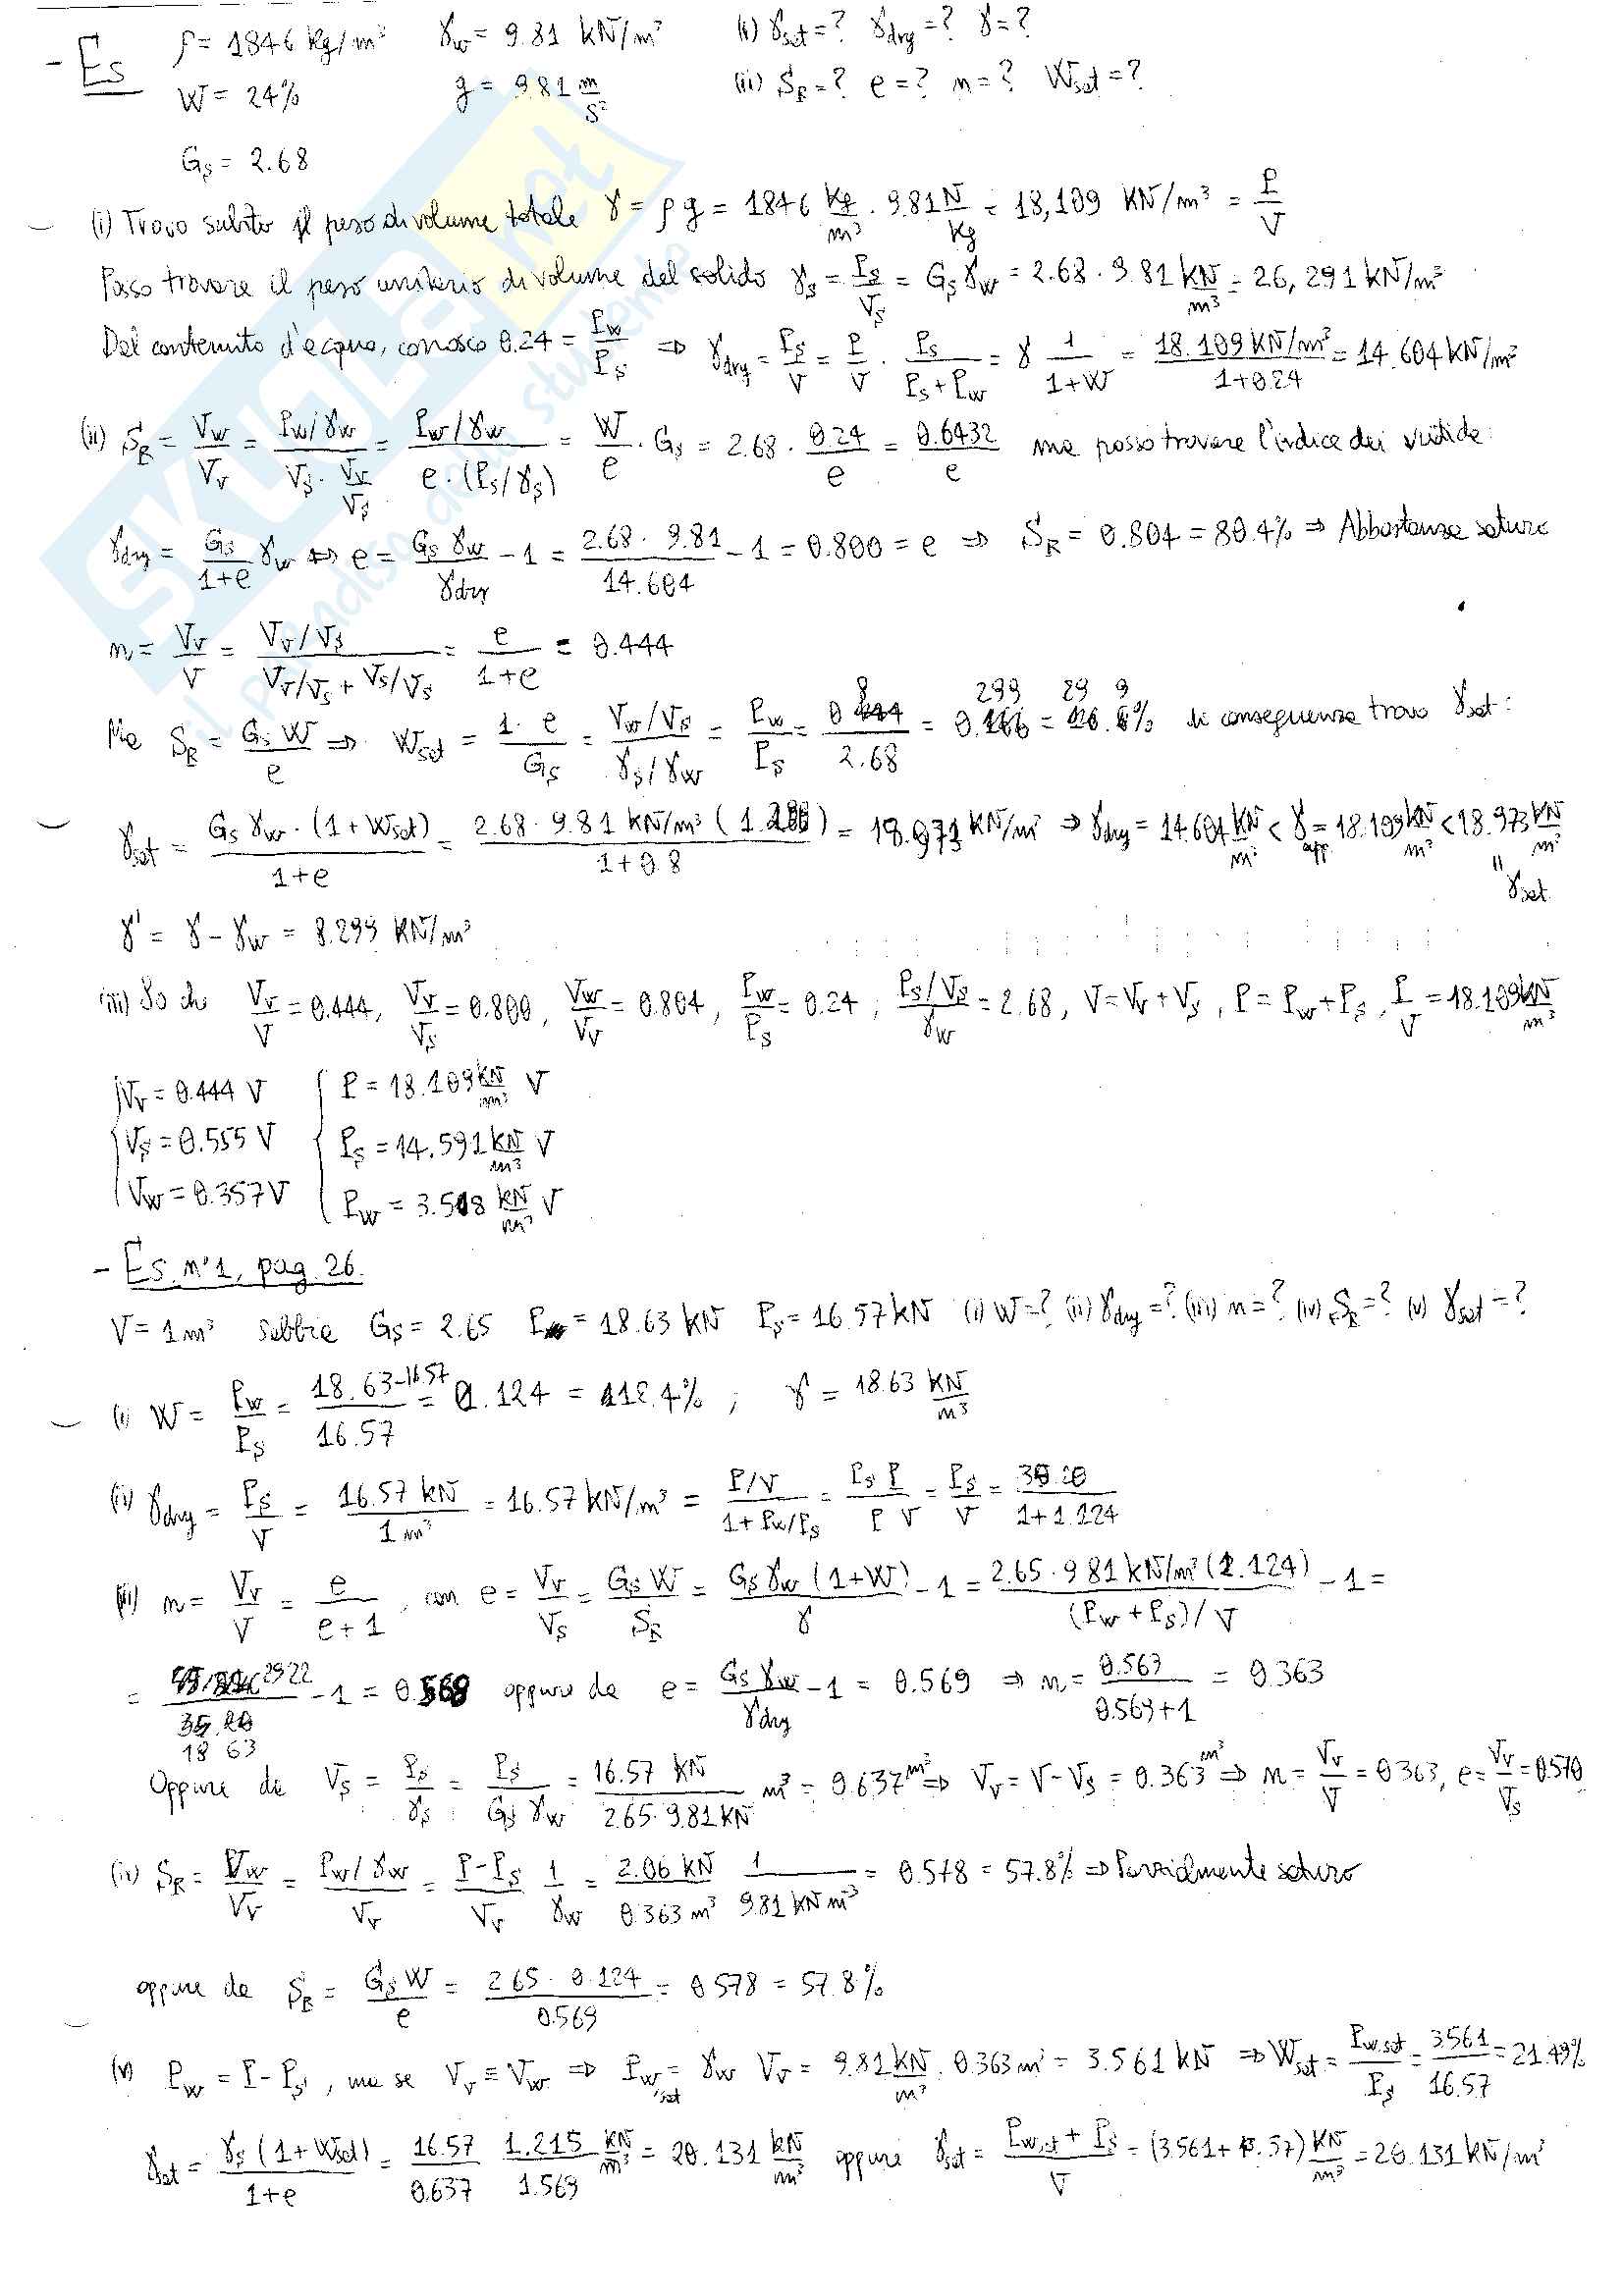 - Es ρ = 1846 Kg/m³ γw = 9.81 KN/m³ (i) γsat = ? γdry = ? γ = ?
W = 24% g = 9.81 m/s² (ii) SR = ? e = ? n = ? Wsat = ?
Gs = 2.68
(i) Trovo subito il peso di volume totale γ = ρ g = 1846 Kg/m³ · 9.81 N/Kg = 18,109 KN/m³ = P/V
Posso trovare il peso unitario di volume del solido γs = Ps/Vs = Gs γw = 2.68 · 9.81 KN/m³ = 26,291 KN/m³
Dal contenuto d'acqua, conosco 0.24 = Pw/Ps ⇒ γdry = Ps/V = P/V · Ps/(Ps+Pw) = γ 1/(1+W) = 18.109 KN/m³/(1+0.24) = 14.604 KN/m³
(ii) SR = Vw/Vv = (Pw/γw)/(Vs · Vv/Vs) = (Pw/γw)/(e · (Ps/γs)) = W/e · Gs = 2.68 · 0.24/e = 0.6432/e ma posso trovare l'indice dei vuoti da:
γdry = Gs/(1+e) γw ⇔ e = Gs γw/γdry - 1 = 2.68 · 9.81/14.604 - 1 = 0.800 = e ⇒ SR = 0.804 = 80.4% ⇒ Abbastanza saturo
n = Vv/V = (Vv/Vs)/(Vv/Vs + Vs/Vs) = e/(1+e) = 0.444
Ma SR = Gs W/e ⇒ Wsat = 1 · e/Gs = (Vw/Vs)/(γs/γw) = Pw/Ps = 0.8/2.68 = 0.299 = 29.9% di conseguenza trovo γsat:
γsat = Gs γw · (1+Wsat)/(1+e) = 2.68 · 9.81 KN/m³ ( )/(1+0.8) = 18.971 KN/m³ ⇒ γdry = 14.604 KN/m³ < γapp = 18.109 KN/m³ < 18.973 KN/m³ = γsat
γ' = γ - γw = 8.299 KN/m³
(iii) So che Vv/V = 0.444, Vv/Vs = 0.800, Vw/Vv = 0.804, Pw/Ps = 0.24, (Ps/Vs)/γw = 2.68, V = Vv + Vs, P = Pw + Ps, P/V = 18.109 KN/m³
{ Vv = 0.444 V { P = 18.109 KN/m³ V
Vs = 0.555 V Ps = 14.591 KN/m³ V
Vw = 0.357 V Pw = 3.518 KN/m³ V
- Es n°1, pag. 26.
V = 1 m³ sabbia Gs = 2.65 P = 18.63 KN Ps = 16.57 KN (i) W = ? (ii) γdry = ? (iii) n = ? (iv) SR = ? (v) γsat = ?
(i) W = Pw/Ps = (18.63-16.57)/16.57 = 0.124 = 12.4% ; γ = 18.63 KN/m³
(ii) γdry = Ps/V = 16.57 KN/1 m³ = 16.57 KN/m³ = (P/V)/(1+Pw/Ps) = Ps P/(P V) = Ps/V = /(1+1.124)
(iii) n = Vv/V = e/(e+1), con e = Vv/Vs = Gs W/SR = Gs γw (1+W)/γ - 1 = 2.65 · 9.81 KN/m³ (1.124)/((Pw+Ps)/V) - 1 =
= 29.22/18.63 - 1 = 0.568 oppure da e = Gs γw/γdry - 1 = 0.569 ⇒ n = 0.569/(0.569+1) = 0.363
Oppure da Vs = Ps/γs = Ps/(Gs γw) = 16.57 KN/(2.65 · 9.81 KN) m³ = 0.637 m³ ⇒ Vv = V - Vs = 0.363 m³ ⇒ n = Vv/V = 0.363, e = Vv/Vs = 0.570
(iv) SR = Vw/Vv = (Pw/γw)/Vv = (P-Ps)/Vv 1/γw = 2.06 KN/0.363 m³ 1/(9.81 KN m³) = 0.578 = 57.8% ⇒ Parzialmente saturo
oppure da SR = Gs W/e = 2.65 · 0.124/0.569 = 0.578 = 57.8%
(v) Pw = P - Ps, ma se Vv = Vw ⇒ Pw,sat = γw Vv = 9.81 KN/m³ · 0.363 m³ = 3.561 KN ⇒ Wsat = Pw,sat/Ps = 3.561/16.57 = 21.49%
γsat = γs (1+Wsat)/(1+e) = 16.57/0.637 1.215/1.569 KN/m³ = 20.131 KN/m³ oppure γsat = (Pw,sat + Ps)/V = (3.561 + 16.57) KN/m³ = 20.131 KN/m³